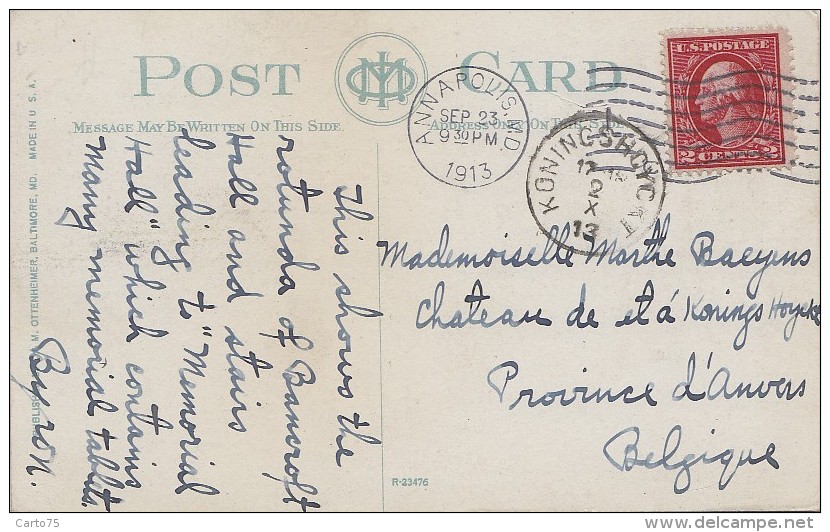 POST CARD
MESSAGE MAY BE WRITTEN ON THIS SIDE
ADDRESS ONLY ON THIS SIDE
ANNAPOLIS MD
SEP 23
9 30 PM
1913
KONINGSHOYCKT
2
X
13
U.S. POSTAGE
2 CENTS 2
This shows the
rotunda of Bancroft
Hall and stairs
leading to "Memorial
Hall" which contains
many memorial tablets.
Byron.
Mademoiselle Marthe Baeyens
Chateau de et á Konings Hoyckt
Province d'Anvers
Belgique
M. OTTENHEIMER, BALTIMORE, MD. MADE IN U. S. A.
R-23476
Carto75
www.delcampe.net